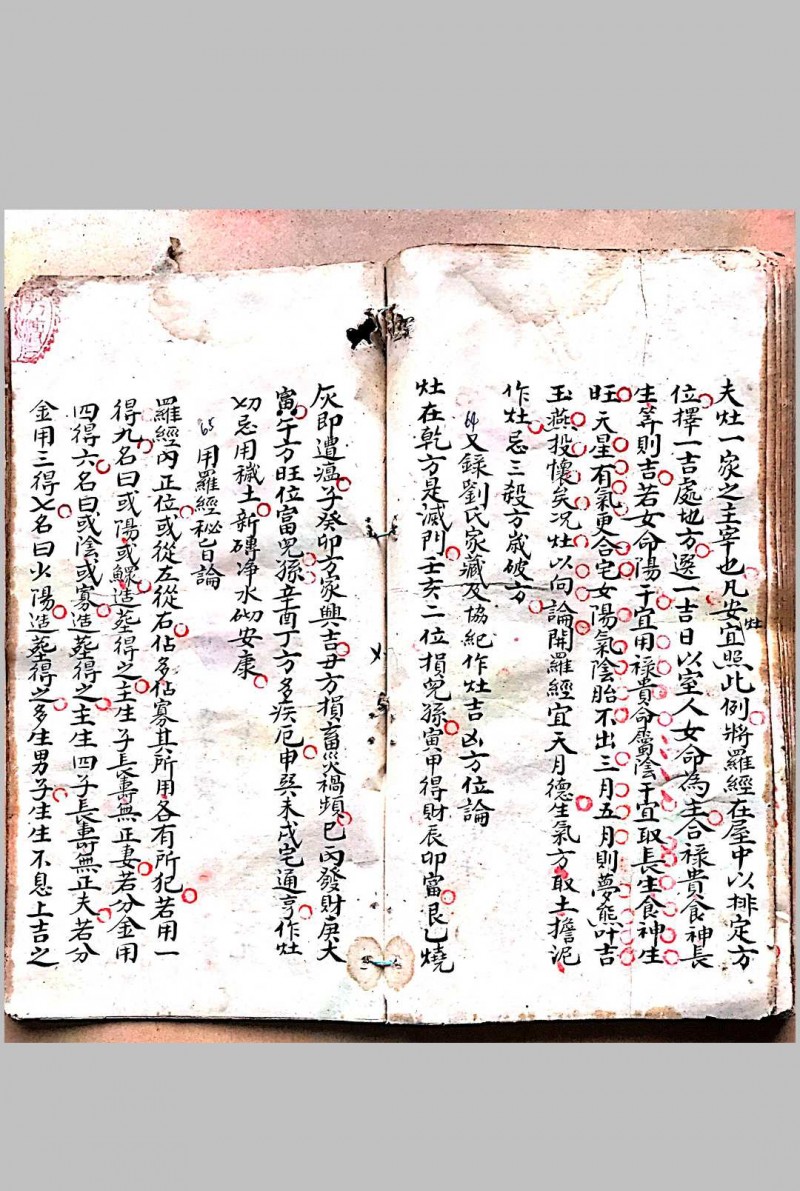 夫灶一家之主宰也凡安灶宜照此例將羅經在屋中以排定方
位擇一吉處地方選一吉日以室人女命為主合祿貴食神長
生等則吉若女命陽干宜用祿貴命屬陰干宜取長生食神生
旺天星有氣更合宅女陽氣陰胎不出三月五月則夢熊叶吉
玉燕投懷矣况灶以向論開羅經宜天月德生氣方取土擔泥
作灶忌三殺方歲破方
64 又錄劉氏家藏及協紀作灶吉凶方位論
灶在乾方是滅門壬亥二位損兒孫寅甲得財辰卯富艮乙燒
灰即遭瘟子癸卯方家興吉丑方損畜災禍頻巳丙發財庚大
寅午方旺位富兒孫辛酉丁方多疾厄申巽未戌宅通亨作灶
切忌用穢土新磚净水砌安康
65 用羅經秘旨論
羅經內正位或從左從右佔多佔寡其所用各有所犯若用一
得九名曰或陽或鰥造塟得之主生子長壽無正妻若分金用
四得六名曰或陰或寡造塟得之主生四子長壽無正夫若分
金用三得七名曰火陽造塟得之多生男子生生不息上吉之